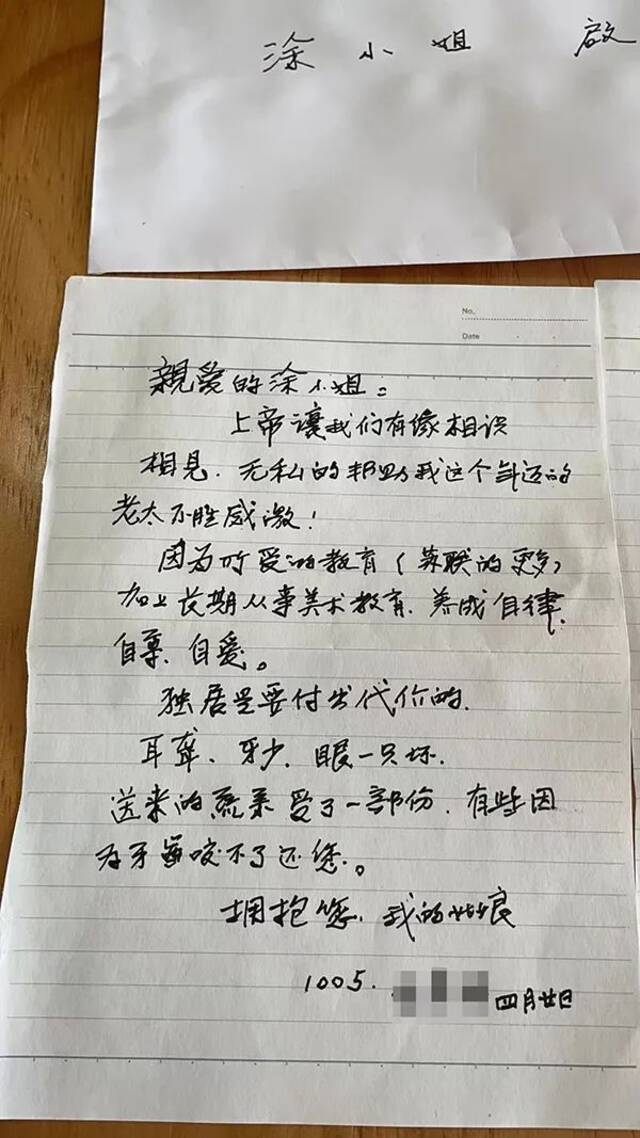 涂小姐 啟
No.
Date
親爱的涂小姐:
上帝讓我们有缘相识
相见.无私的帮助我这个年迈的
老太不胜感激!
因为所受的教育(苏联的更多)
加上长期从事美术教育.养成自律.
自尊.自爱。
独居是要付出代价的.
耳聋.牙少.眼一只坏.
送来的蔬菜受了一部份.有些因
为牙齒咬不了还您.。
拥抱您.我的姑娘
1005. 四月廿日